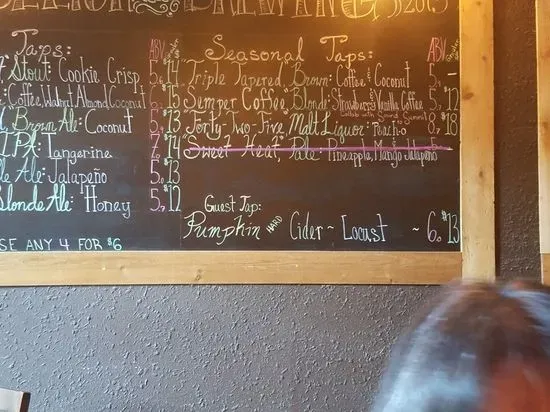 BREWING
2015
Taps: ABV
Stout: Cookie Crisp 5. $14
: Coffee, Walnut Almond Coconut 6. $15
Brown Ale: Coconut 5. $13
IPA: Tangerine 7. $14
le Ale: Jalapeño 5. $13
Blonde Ale: Honey 5. $12
SE ANY 4 FOR $6
Seasonal Taps: ABV
"Triple Tapered" Brown: Coffee & Coconut 5.
"Semper Coffee" Blonde: Strawberry & Vanilla Coffee 5. $12
Collab with Sound Summit
"Forty-Two-Five" Malt Liquor: Peach 8. $18
Sweet Heat, Pale: Pineapple, Mango Jalapeño
Guest Tap:
Pumpkin HARD Cider ~ Locust ~ 6. $13